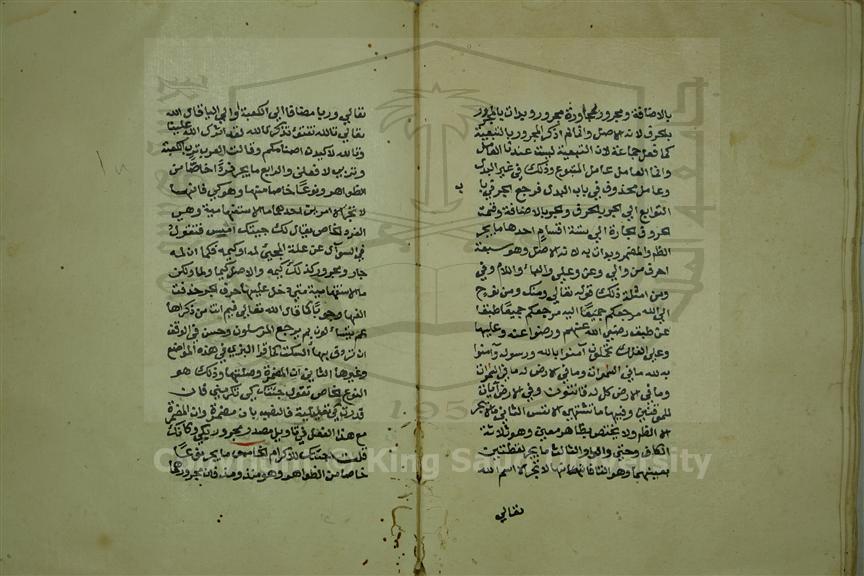 بالاضافة ومجرور لمجاورة مجرور وبدات بالمجرور
بالحرف لانه الاصل وانما لم اذكر المجرور بالتبعية
كما فعل جماعة لان التبعية ليست عندنا العامل
وانما العامل عامل المتبوع وذلك في غير البدل
وعامل محذوف في باب البدل فرجع الجر في باب
التوابع الي الجر بالحرف والجر بالاضافة وقسمت
الحروف الجارة الي ستة اقسام احدها ما يجر
الظاهر والمضمر وبدات به لانه الاصل وهو سبعة
احرف من والي وعن وعلي والباء واللام وفي
ومن امثلة ذلك قوله تعالي ومنك ومن نوح
الي الله مرجعكم جميعا اليه مرجعكم جميعا طبقا
عن طبق رضي الله عنهم ورضوا عنه وعليها
وعلي الفلك تحملون آمنوا بالله ورسوله وآمنوا
به لله ما في السموات وما في الارض له ما في السموات
وما في الارض كل له قانتون وفي الارض آيات
للموقنين وفيها ما تشتهي الانفس الثاني ما لا يجر
الا الظاهر ولا يختص بظاهر معين وهو ثلاثة
الكاف وحتي والواو الثالث ما يجر لفظتين
بعينهما وهو التا فانها لا تجر الا اسم الله
تعالي
تعالي وربا مضافا الي الكعبة او الي اليا قال الله
تعالي تالله تفتؤ تذكر تالله لقد آثرك الله علينا
وتالله لاكيدن اصنامكم وقالت العرب ترب الكعبة
وتربي لافعلن والرابع ما يجر فردا خاصا من
الظواهر ونوعا خاصا منها وهو كي فانها
لا تجر الا امرين احدهما ما الاستفهامية وهي
الفرد الخاص يقال لك جيتك امس فتقول
في السؤال عن علة المجيء لمه او كيمه فكما ان لمه
جار ومجرور كذلك كيمه والاصل كيما ولما ولكن
ما الاستفهامية متي دخل عليها حرف الجر حذفت
الفها وجوبا كما قال الله تعالي فيم انت من ذكراها
عم يتساءلون بم يرجع المرسلون وحسن في الوقف
ان تردف بهاء السكت كما قرا البزي في هذه المواضع
وغيرها الثاني ان المضمرة وصلتها وذلك هو
النوع الخاص تقول جئتك كي تكرمني فان
قدرت كي تعليلية فالنصب بان مضمرة وان المضمرة
مع هذا الفعل في تاويل مصدر مجرور بكي وكانك
قلت جئتك للاكرام الخامس ما يجر نوعا
خاصا من الظواهر وهو منذ ومذ فان مجرورهما